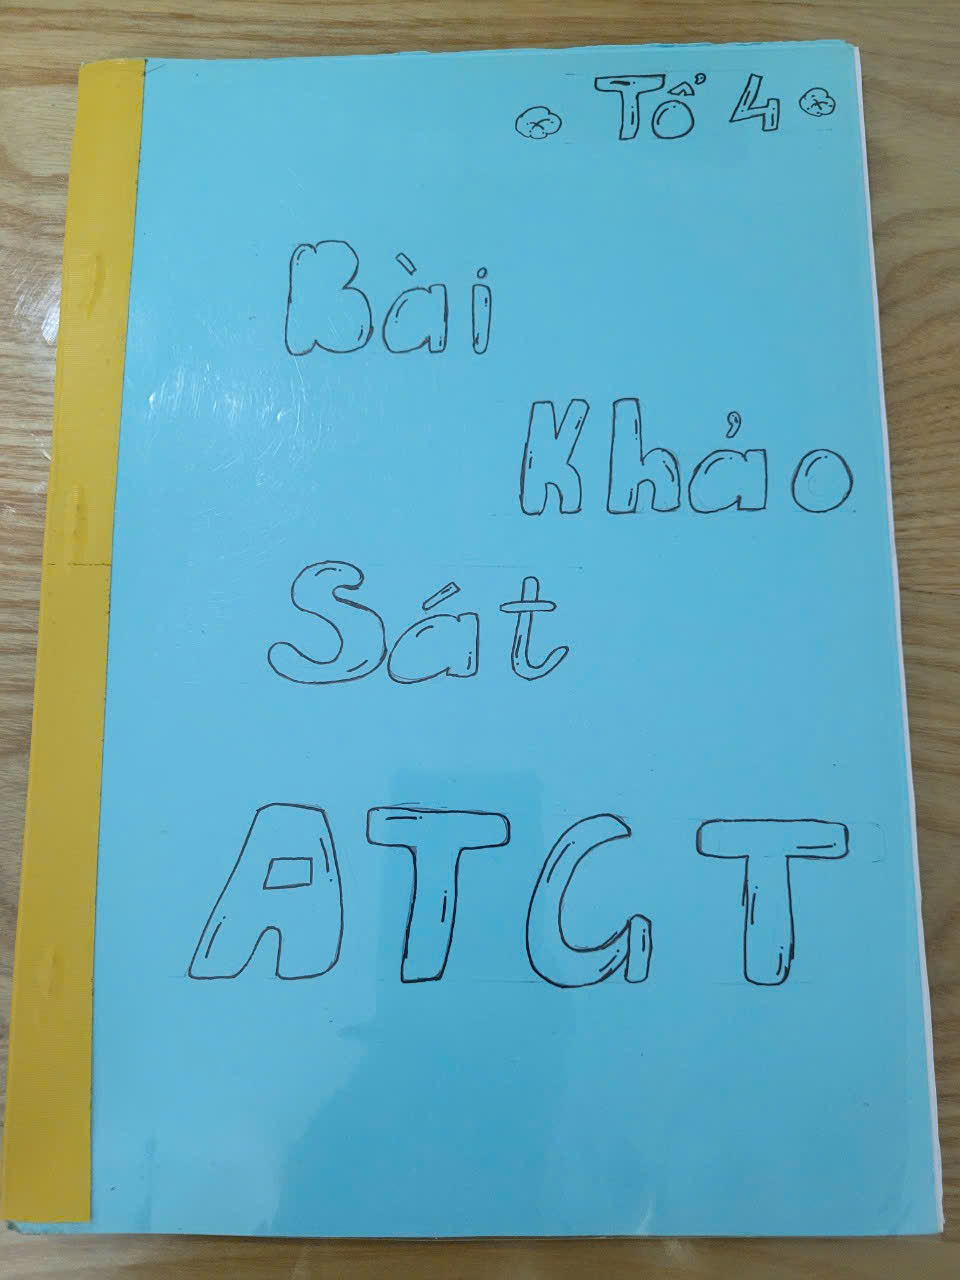 Tổ 4
Bài
Khảo
Sát
ATGT